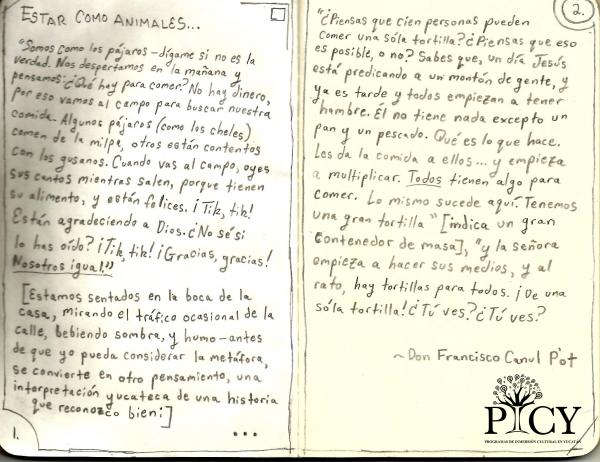 ESTAR COMO ANIMALES...
"Somos como los pájaros – dígame si no es la
verdad. Nos despertamos en la mañana y
pensamos: ¿Qué hay para comer? No hay dinero,
por eso vamos al campo para buscar nuestra
comida. Algunos pájaros (como los cheles)
comen de la milpa, otros están contentos
con los gusanos. Cuando vas al campo, oyes
sus cantos mientras salen, porque tienen
su alimento, y están felices. ¡Tik, tik!
Están agradeciendo a Dios. ¿No sé si
lo has oído? ¡Tik, tik! ¡Gracias, gracias!
Nosotros igual."
[Estamos sentados en la boca de la
casa, mirando el tráfico ocasional de la
calle, bebiendo sombra, y humo – antes
de que yo pueda considerar la metáfora,
se convierte en otro pensamiento, una
interpretación yucateca de una historia
que reconozco bien:]
...
1.
2.
"¿Piensas que cien personas pueden
comer una sóla tortilla? ¿Piensas que eso
es posible, o no? Sabes que, un día Jesús
está predicando a un montón de gente, y
ya es tarde y todos empiezan a tener
hambre. Él no tiene nada excepto un
pan y un pescado. Qué es lo que hace.
Les da la comida a ellos... y empieza
a multiplicar. Todos tienen algo para
comer. Lo mismo sucede aquí. Tenemos
una gran tortilla" [indica un gran
contenedor de masa], "y la señora
empieza a hacer sus medios, y al
rato, hay tortillas para todos. ¡De una
sóla tortilla! ¿Tú ves? ¿Tú ves?
~Don Francisco Canul P'ot
PICY
PROGRAMAS DE INMERSIÓN CULTURAL EN YUCATÁN